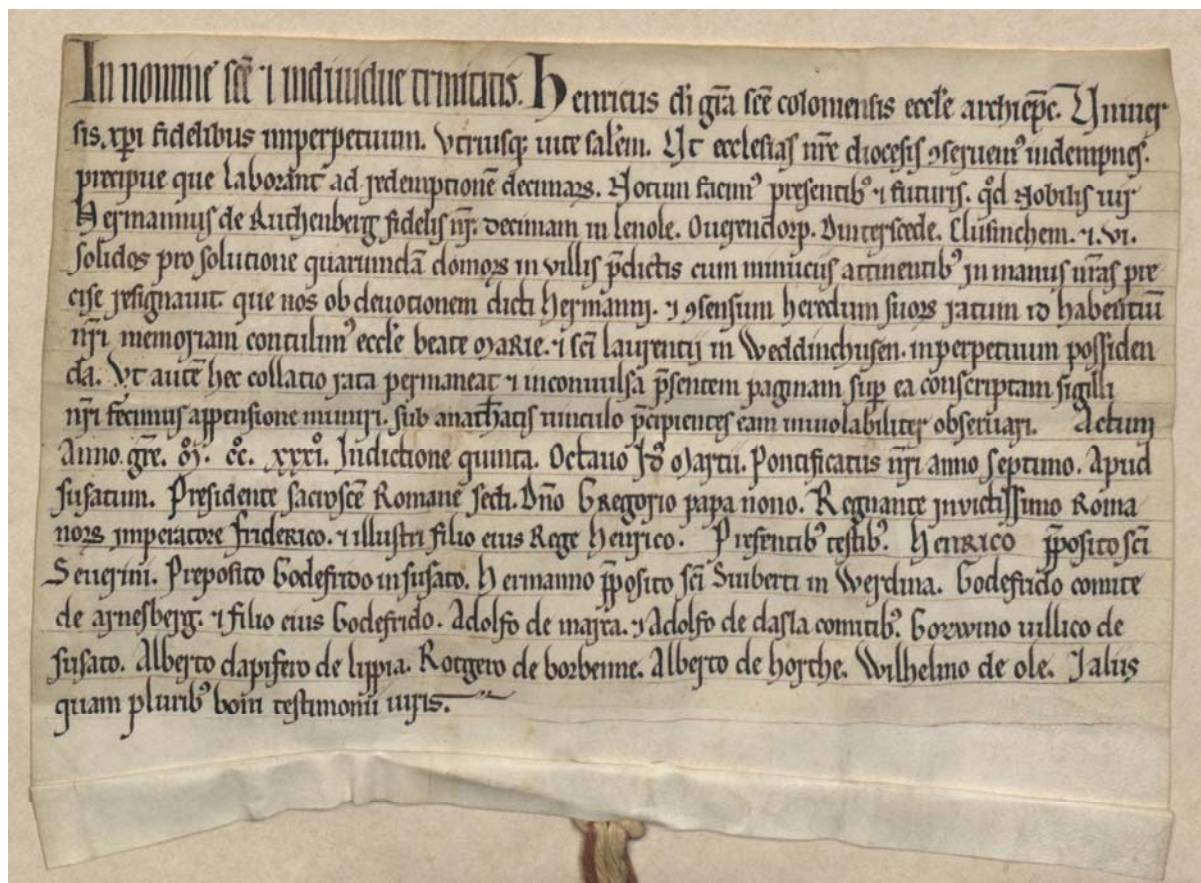 In nomine sce̅ ⁊ indiuidue trinitatis. Henricus di̅ gr̅a sce̅ coloniensis eccle̅ archiep̅c. Vniuer
sis xp̅i fidelibus imperpetuum. Vtriusq; uite sale̅m. Vt ecclesias nr̅e diocesis ꝯseruemꝰ indempnes.
precipue que laborant ad redemptione̅ decimaꝝ. Notum facimꝰ presentibꝰ ⁊ futuris. qd̅ Nobilis uir
Hermannus de Ruthenberg fidelis nr̅. decimam in lenole. Ouerendorp. Dinterscede. Clusinchem. ⁊ .vi.
solidos pro solutione quarunda̅ domoꝝ in villis p̅dictis cum minutis attinentibꝰ in manus nr̅as pre
cise resignauit. que nos ob deuotionem dicti Hermanni. ⁊ ꝯsensum heredum suoꝝ ratum id habentiu̅
nr̅i memoriam contulimꝰ eccle̅ beate Marie. ⁊ sc̅i laurentij in Weddinchusen. inperpetuum possiden
da. Vt aute̅ hec collatio rata permaneat ⁊ inconuulsa p̅sentem paginam sup̅ ea conscriptam sigilli
nr̅i fecimus appensione muniri. sub anath̅atis uinculo p̅cipientes eam inuiolabiliter obseruari. Actum
Anno gre̅. M̊. CC̊. xxxi̊. Indictione quinta. Octauo Id̅ Martii. Pontificatus nr̅i anno septimo. Apud
susatum. Presidente sacrosce̅ Romane sedi. Dn̅o Gregorio papa nono. Regnante inuictissimo Roma
noꝝ imperatore friderico. ⁊ illustri filio eius Rege Henrico. Presentibꝰ testibꝰ. HENRICO p̅posito sc̅i
Seuerini. Preposito Godefrido in susato. Hermanno p̅posito sc̅i Suiberti in Werdina. Godefrido comite
de arnesberg. ⁊ filio eius Godefrido. Adolfo de marca. ⁊ Adolfo de dasla comitibꝰ. Gozwino uillico de
susato. Alberto dapifero de lippia. Rotgero de borbenne. Alberto de horthe. Wilhelmo de ole. ⁊ aliis
quam pluribꝰ boni testimonii uiris.